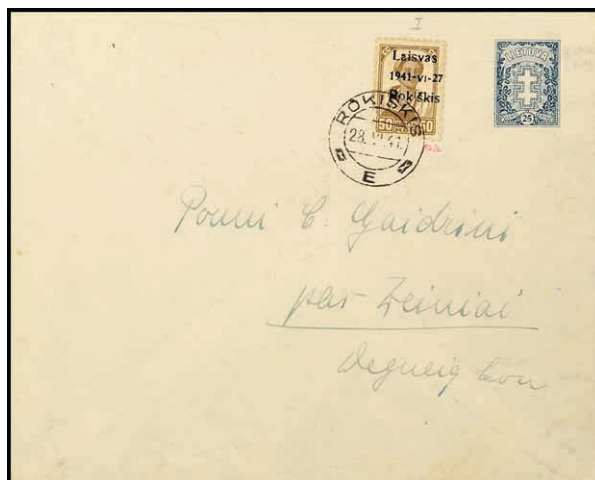 I
Laisvas
1941-VI-27
Rokiškis
50 50
LIETUVA
25
ROKIŠKIS
28. VI. 41.
E
Ponui C. Gaidrini
par Zeiniai